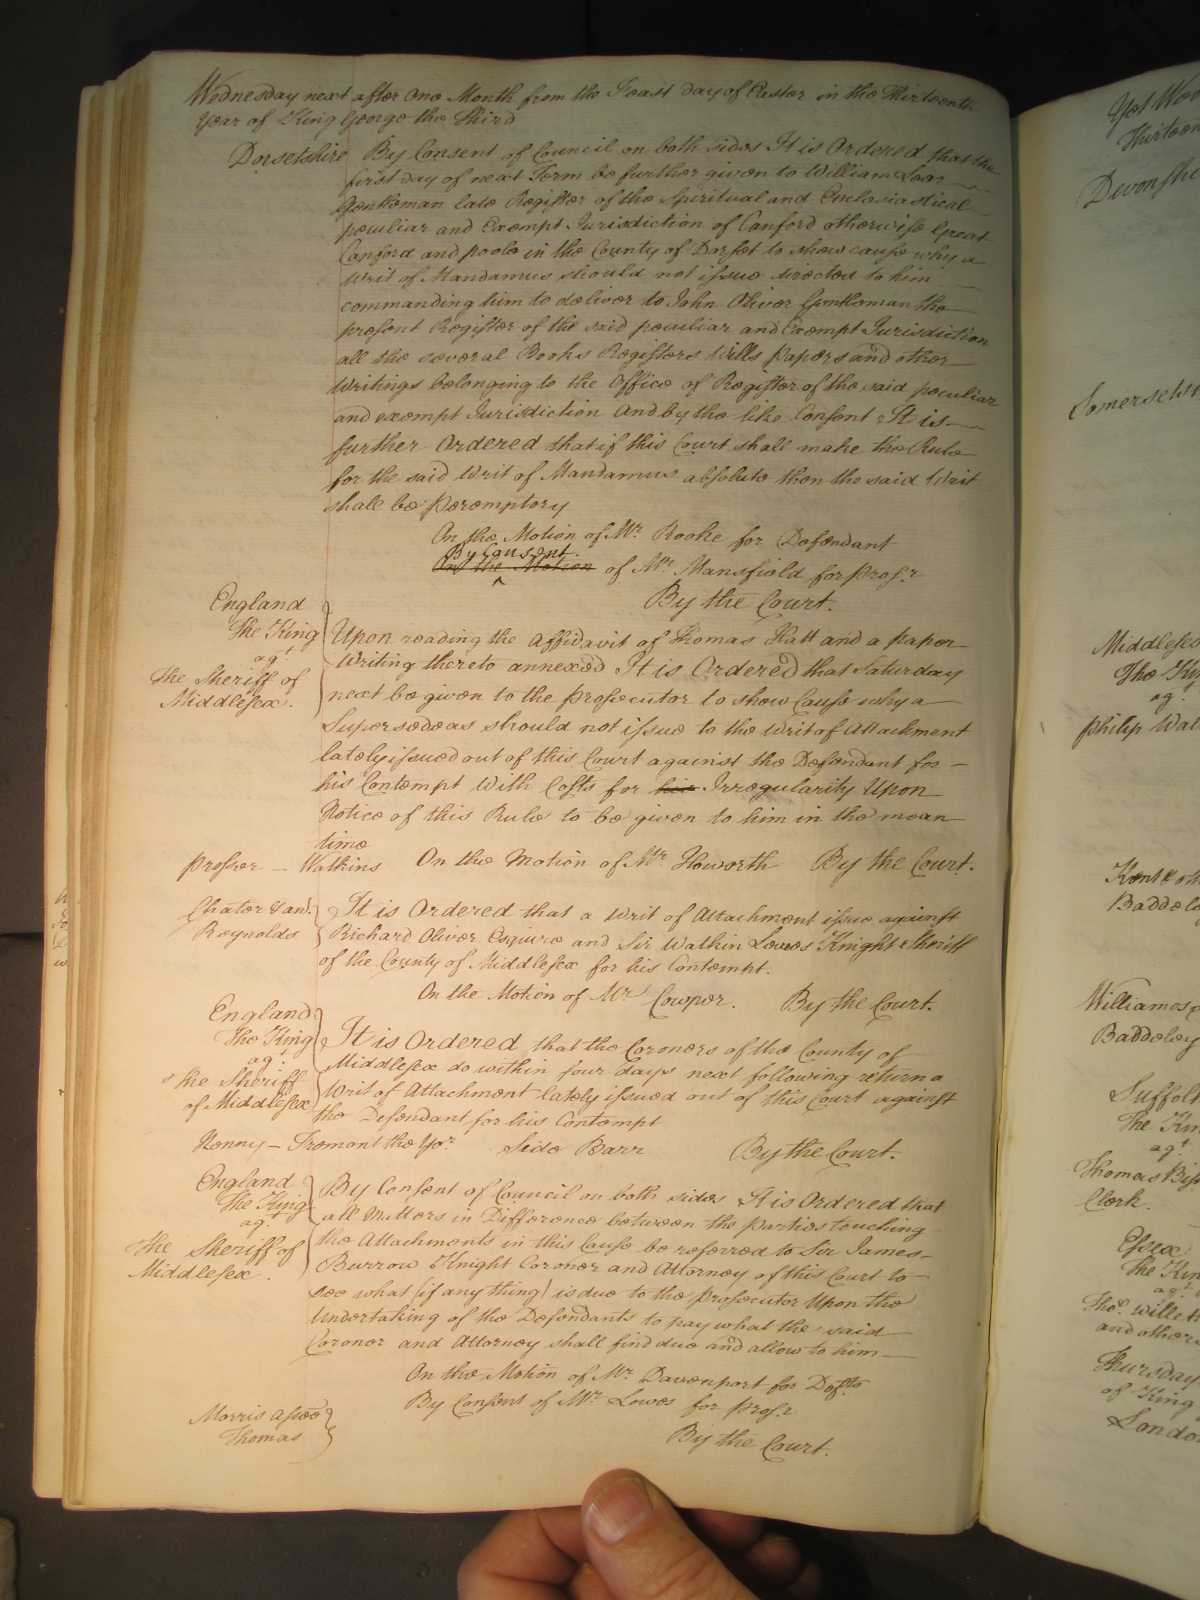 Wednesday next after One Month from the Feast day of Easter in the Thirteenth
Year of King George the Third
Dorsetshire By Consent of Council on both sides It is Ordered that the
first day of next Term be further given to William Loor
Gentleman late Register of the Spiritual and Ecclesiastical
peculiar and Exempt Jurisdiction of Canford otherwise Great
Canford and poole in the County of Dorset to show cause why a
Writ of Mandamus should not issue directed to him
commanding him to deliver to John Oliver Gentleman the
present Register of the said peculiar and Exempt Jurisdiction
all the several Books Registers Wills papers and other
Writings belonging to the Office of Register of the said peculiar
and exempt Jurisdiction And by the like Consent It is
further Ordered that if this Court shall make the Rule
for the said Writ of Mandamus absolute then the said Writ
shall be Peremptory
On the Motion of Mr. Rooke for Defendant
By Consent
On the Motion of Mr. Mansfield for Prosr.
By the Court.
England
The King
agt.
The Sheriff of
Middlesex.
Upon reading the Affidavit of Thomas Hatt and a paper
Writing thereto annexed It is Ordered that Saturday
next be given to the prosecutor to show Cause why a
Supersedeas should not issue to the Writ of Attachment
lately issued out of this Court against the Defendant for
his Contempt With Costs for his Irregularity Upon
Notice of this Rule to be given to him in the mean
time
Prosser - Watkins On the Motion of Mr. Howorth By the Court.
Chater & an.
Reynolds
It is Ordered that a Writ of Attachment issue against
Richard Oliver Esquire and Sir Watkin Lewes Knight Sheriff
of the County of Middlesex for his Contempt.
On the Motion of Mr. Cowper. By the Court.
England
The King
agt.
the Sheriff
of Middlesex
It is Ordered that the Coroners of the County of
Middlesex do within four days next following return a
Writ of Attachment lately issued out of this Court against
the Defendant for his Contempt
Henny - Fremont the Yor. Side Barr By the Court.
England
The King
agt.
The Sheriff of
Middlesex.
By Consent of Council on both sides It is Ordered that
all Matters in Difference between the parties touching
the Attachments in this Cause be referred to Sir James
Burrow Knight Coroner and Attorney of this Court to
see what (if any thing) is due to the prosecutor Upon the
Undertaking of the Defendants to pay what the said
Coroner and Attorney shall find due and allow to him
On the Motion of Mr. Davenport for Defts.
By Consent of Mr. Lowes for Prosr
By the Court.
Morris assee
Thomas
Yet Wed
Thirteen
Devonshi
Somersets
Middlesex
The King
agt.
Philip Wal
Kent
Baddele
Williams
Baddeley
Suffolk
The Kin
agt.
Thomas Bis
Clerk.
Essex
The Kin
agt.
Thos. Willet
and others
Thursday
of King
London